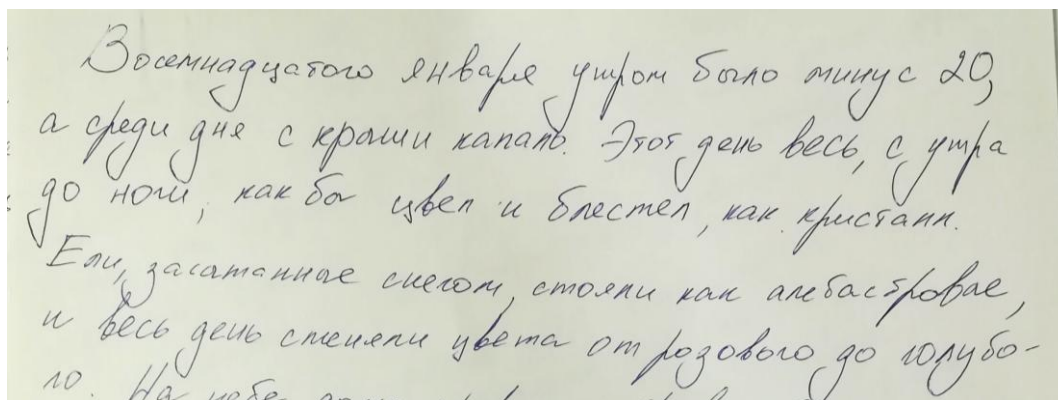 Восемнадцатого января утром было минус 20,
а среди дня с крыши капало. Этот день весь, с утра
до ночи, как бы цвел и блестел, как кристалл.
Ели, засыпанные снегом, стояли как алебастровые,
и весь день сменяли цвета от розового до голубо-
го. На небе